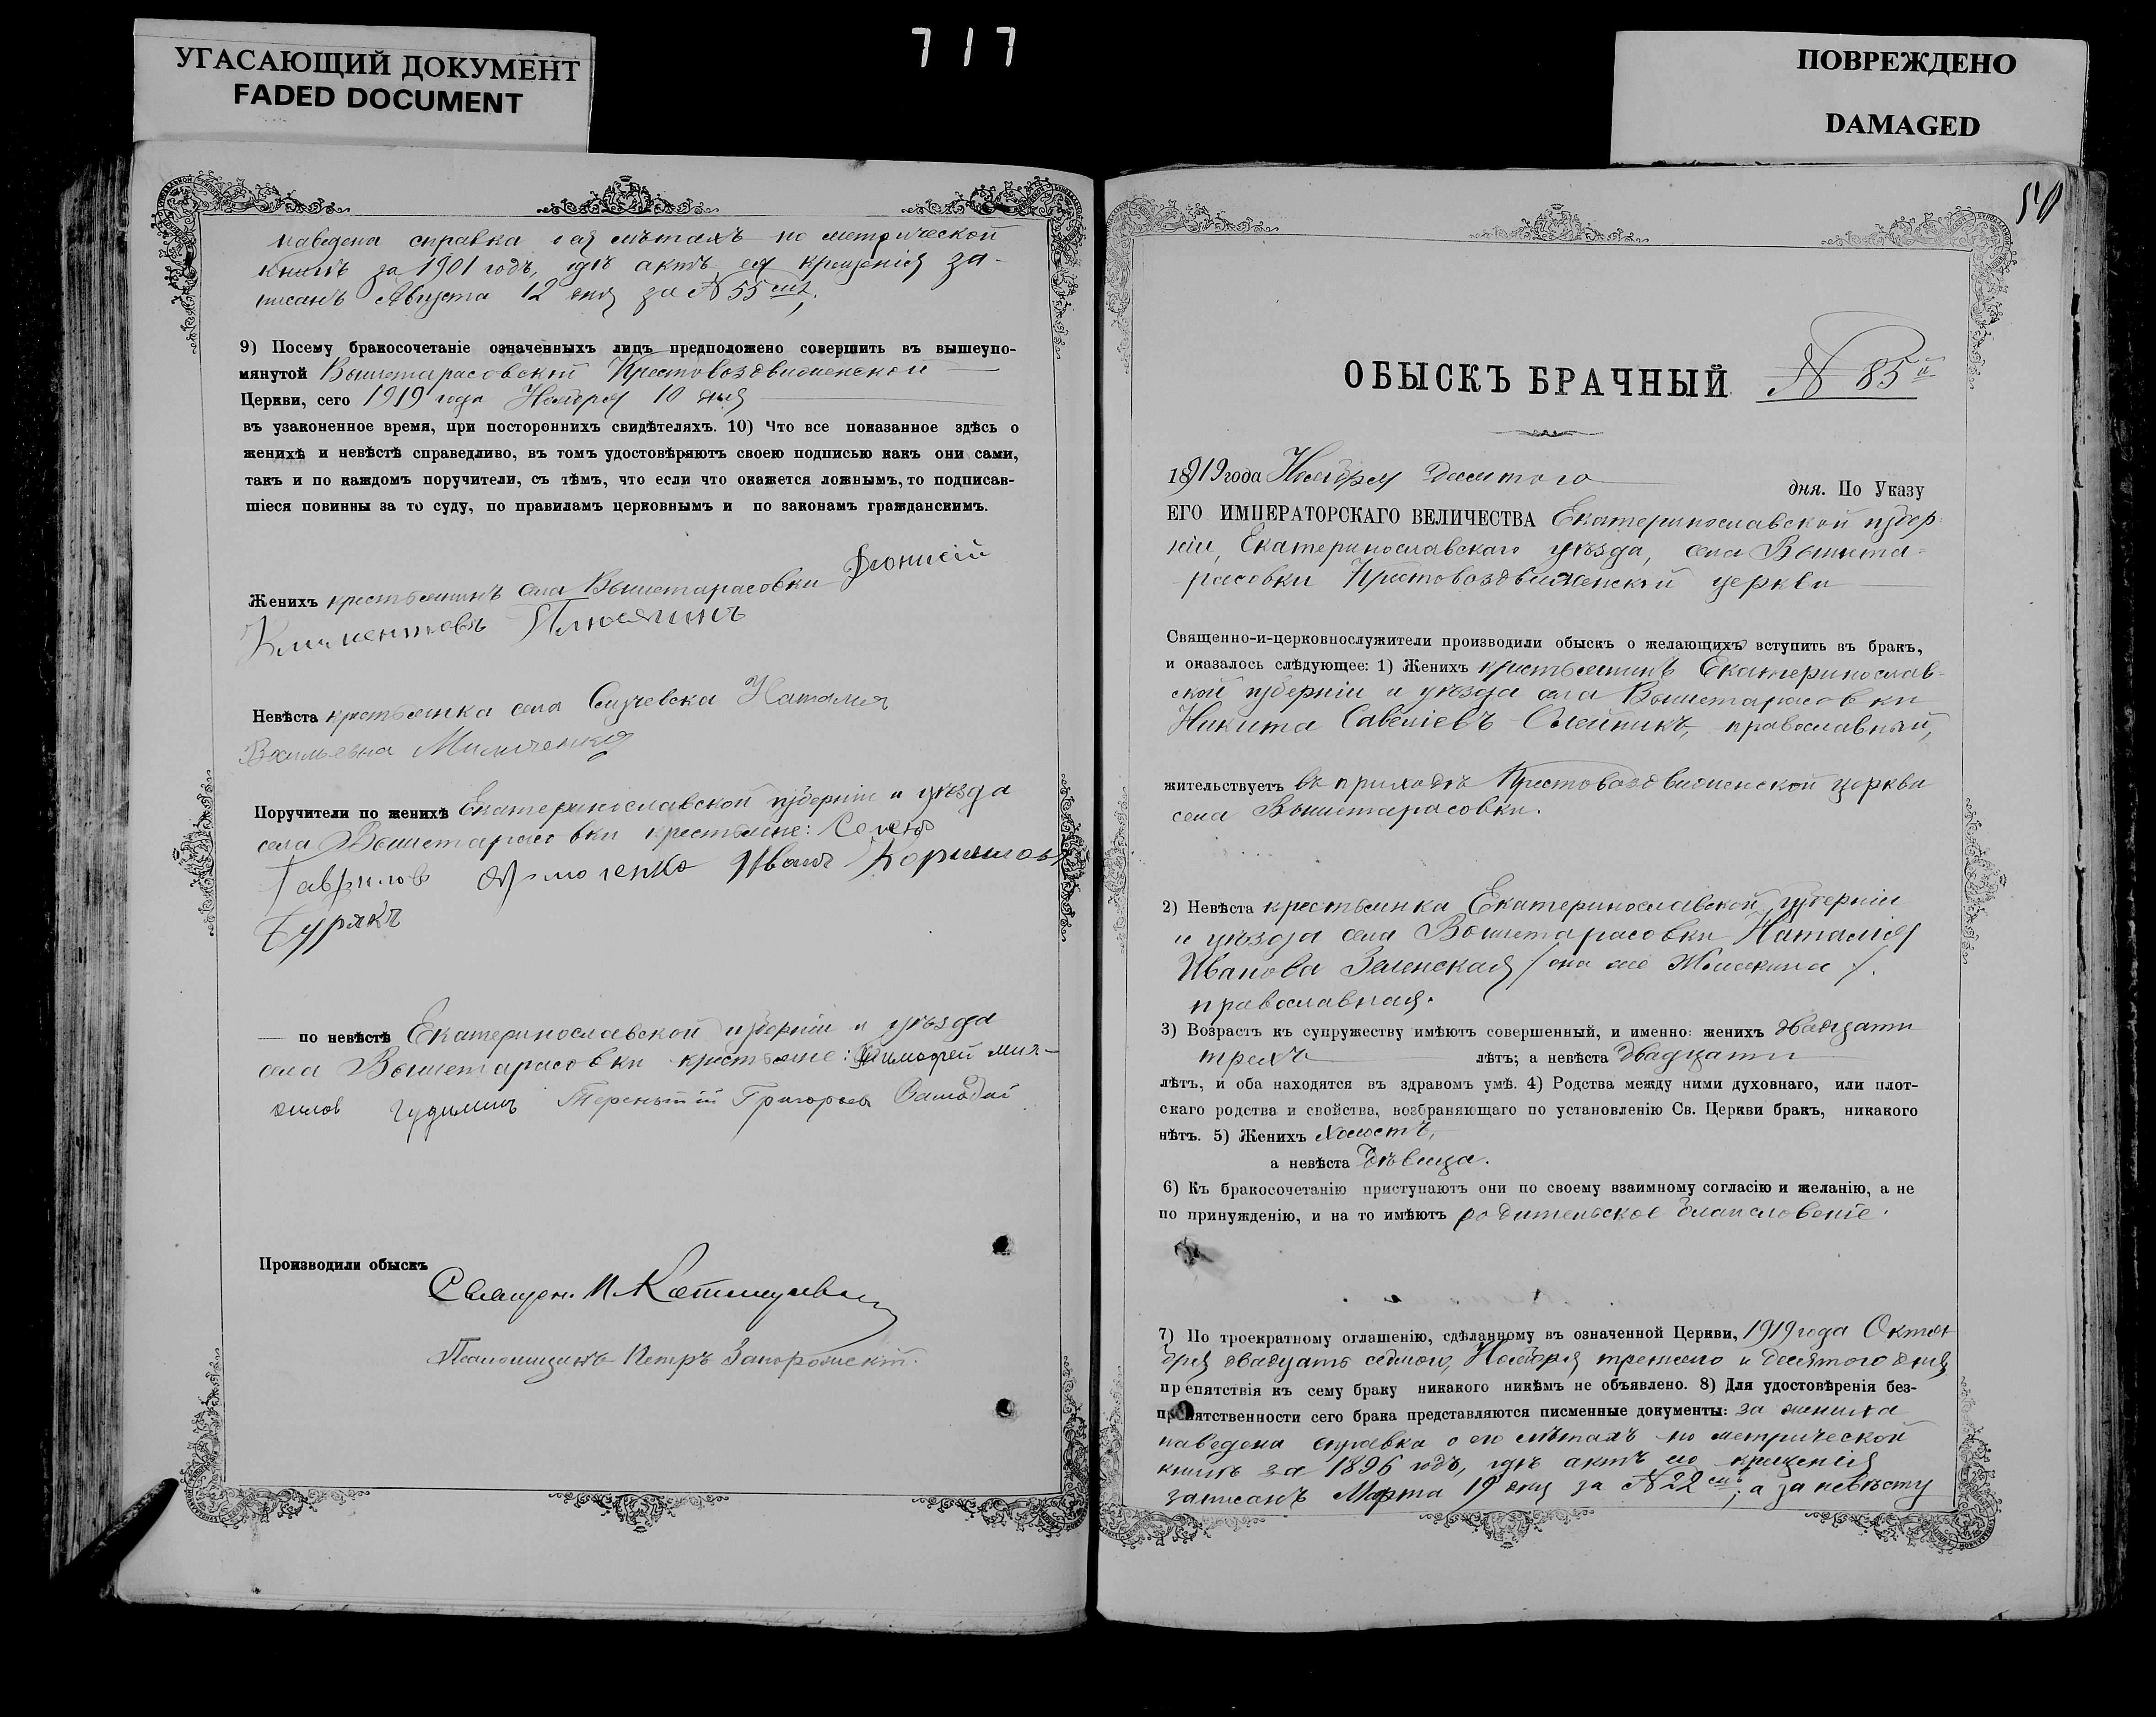 717
УГАСАЮЩИЙ ДОКУМЕНТ
FADED DOCUMENT
ПОВРЕЖДЕНО
DAMAGED
наведена справка о ея лѣтахъ по метрической
книгѣ за 1901 годъ, гдѣ актъ ея крещенія за-
писанъ Августа 12 дня за № 55
9) Посему бракосочетаніе означенныхъ лицъ предположено совершить въ вышеупо-
мянутой Вышетарасовской Крестовоздвиженской
Церкви, сего 1919 года Ноября 10 дня
въ узаконенное время, при постороннихъ свидѣтеляхъ. 10) Что все показанное здѣсь о
женихѣ и невѣстѣ справедливо, въ томъ удостовѣряютъ своею подписью какъ они сами,
такъ и по каждомъ поручители, съ тѣмъ, что если что окажется ложнымъ, то подписав-
шіеся повинны за то суду, по правиламъ церковнымъ и по законамъ гражданскимъ.
Женихъ крестьянинъ села Вышетарасовки Діонисій
Климентовъ
Невѣста крестьянка села Наталия
Васильевна
Поручители по женихѣ Екатеринославской губерніи и уѣзда
села Вышетарасовки крестьяне:
Гаврилов Иванъ
Бурякъ
— по невѣстѣ Екатеринославской губерніи и уѣзда
села Вышетарасовки крестьяне: Тимофей Миха-
йлов Терентій Григорьев
Производили обыскъ
Священ. И.
Псаломщикъ Петръ Запорожскій.
50
ОБЫСКЪ БРАЧНЫЙ № 85й
1919 года Ноября десятого дня. По Указу
ЕГО ИМПЕРАТОРСКАГО ВЕЛИЧЕСТВА Екатеринославской губер-
ніи, Екатеринославскаго уѣзда, села Вышета-
расовки Крестовоздвиженской церкви
Священно-и-церковнослужители производили обыскъ о желающихъ вступить въ бракъ,
и оказалось слѣдующее: 1) Женихъ крестьянинъ Екатеринослав-
ской губерніи и уѣзда села Вышетарасовки
Никита Савеліевъ Олейникъ, православный,
жительствуетъ въ приходѣ Крестовоздвиженской церкви
села Вышетарасовки.
2) Невѣста крестьянка Екатеринославской губерніи
и уѣзда села Вышетарасовки Наталія
Иванова Зеленская / она же /.
православная.
3) Возрастъ къ супружеству имѣютъ совершенный, и именно: женихъ двадцати
трехъ лѣтъ; а невѣста двадцати
лѣтъ, и оба находятся въ здравомъ умѣ. 4) Родства между ними духовнаго, или плот-
скаго родства и свойства, возбраняющаго по установленію Св. Церкви бракъ, никакого
нѣтъ. 5) Женихъ холостъ,
а невѣста дѣвица.
6) Къ бракосочетанію приступаютъ они по своему взаимному согласію и желанію, а не
по принужденію, и на то имѣютъ родительское благословеніе.
7) По троекратному оглашенію, сдѣланному въ означенной Церкви, 1919 года Октя-
бря двадцать седьмого, Ноября третьяго и десятого дня
препятствія къ сему браку никакого никѣмъ не объявлено. 8) Для удостовѣренія без-
препятственности сего брака представляются писменные документы: за жениха
наведена справка о его лѣтахъ по метрической
книгѣ за 1896 годъ, гдѣ актъ его крещенія
записанъ Марта 19 дня за № 22; а за невѣсту